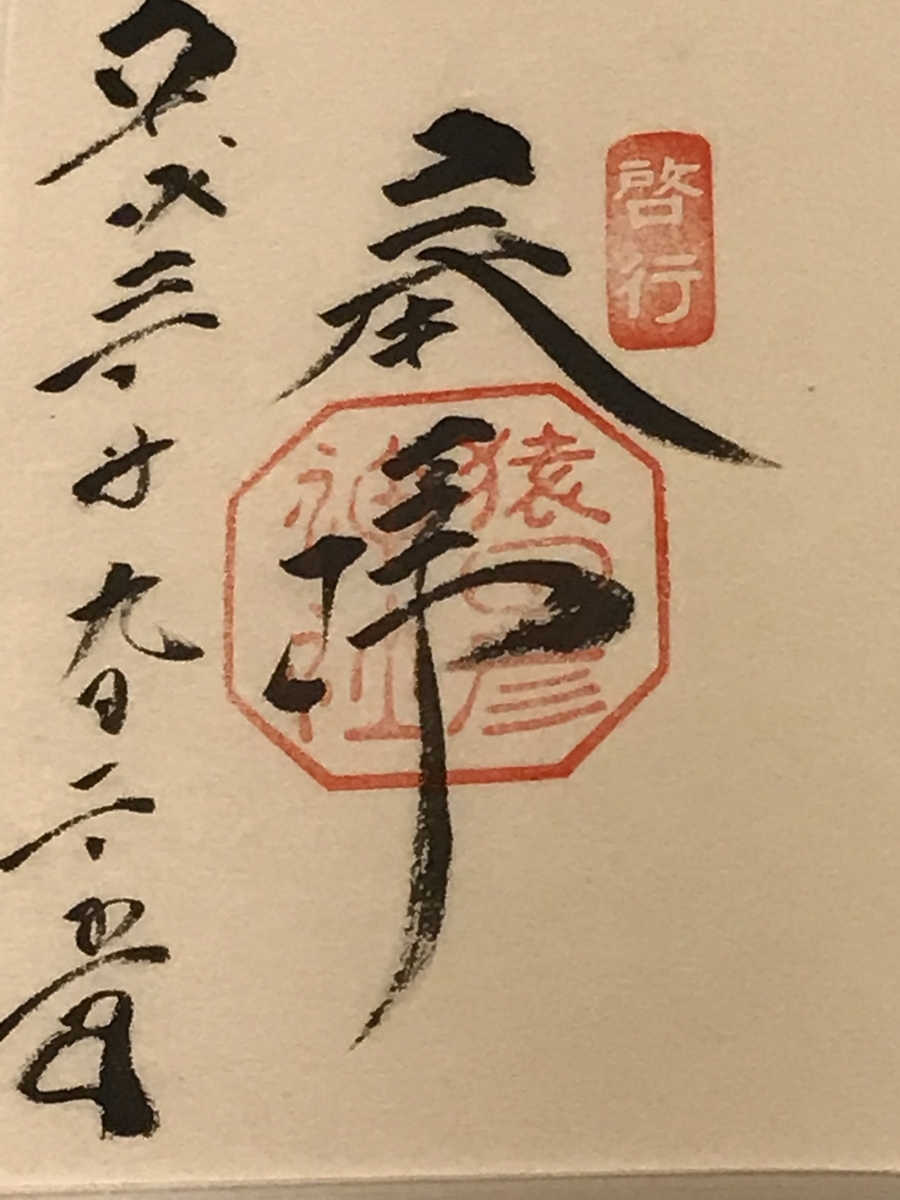 啓行
奉拝
猿田彦
神社
平成三十年九月二十五日